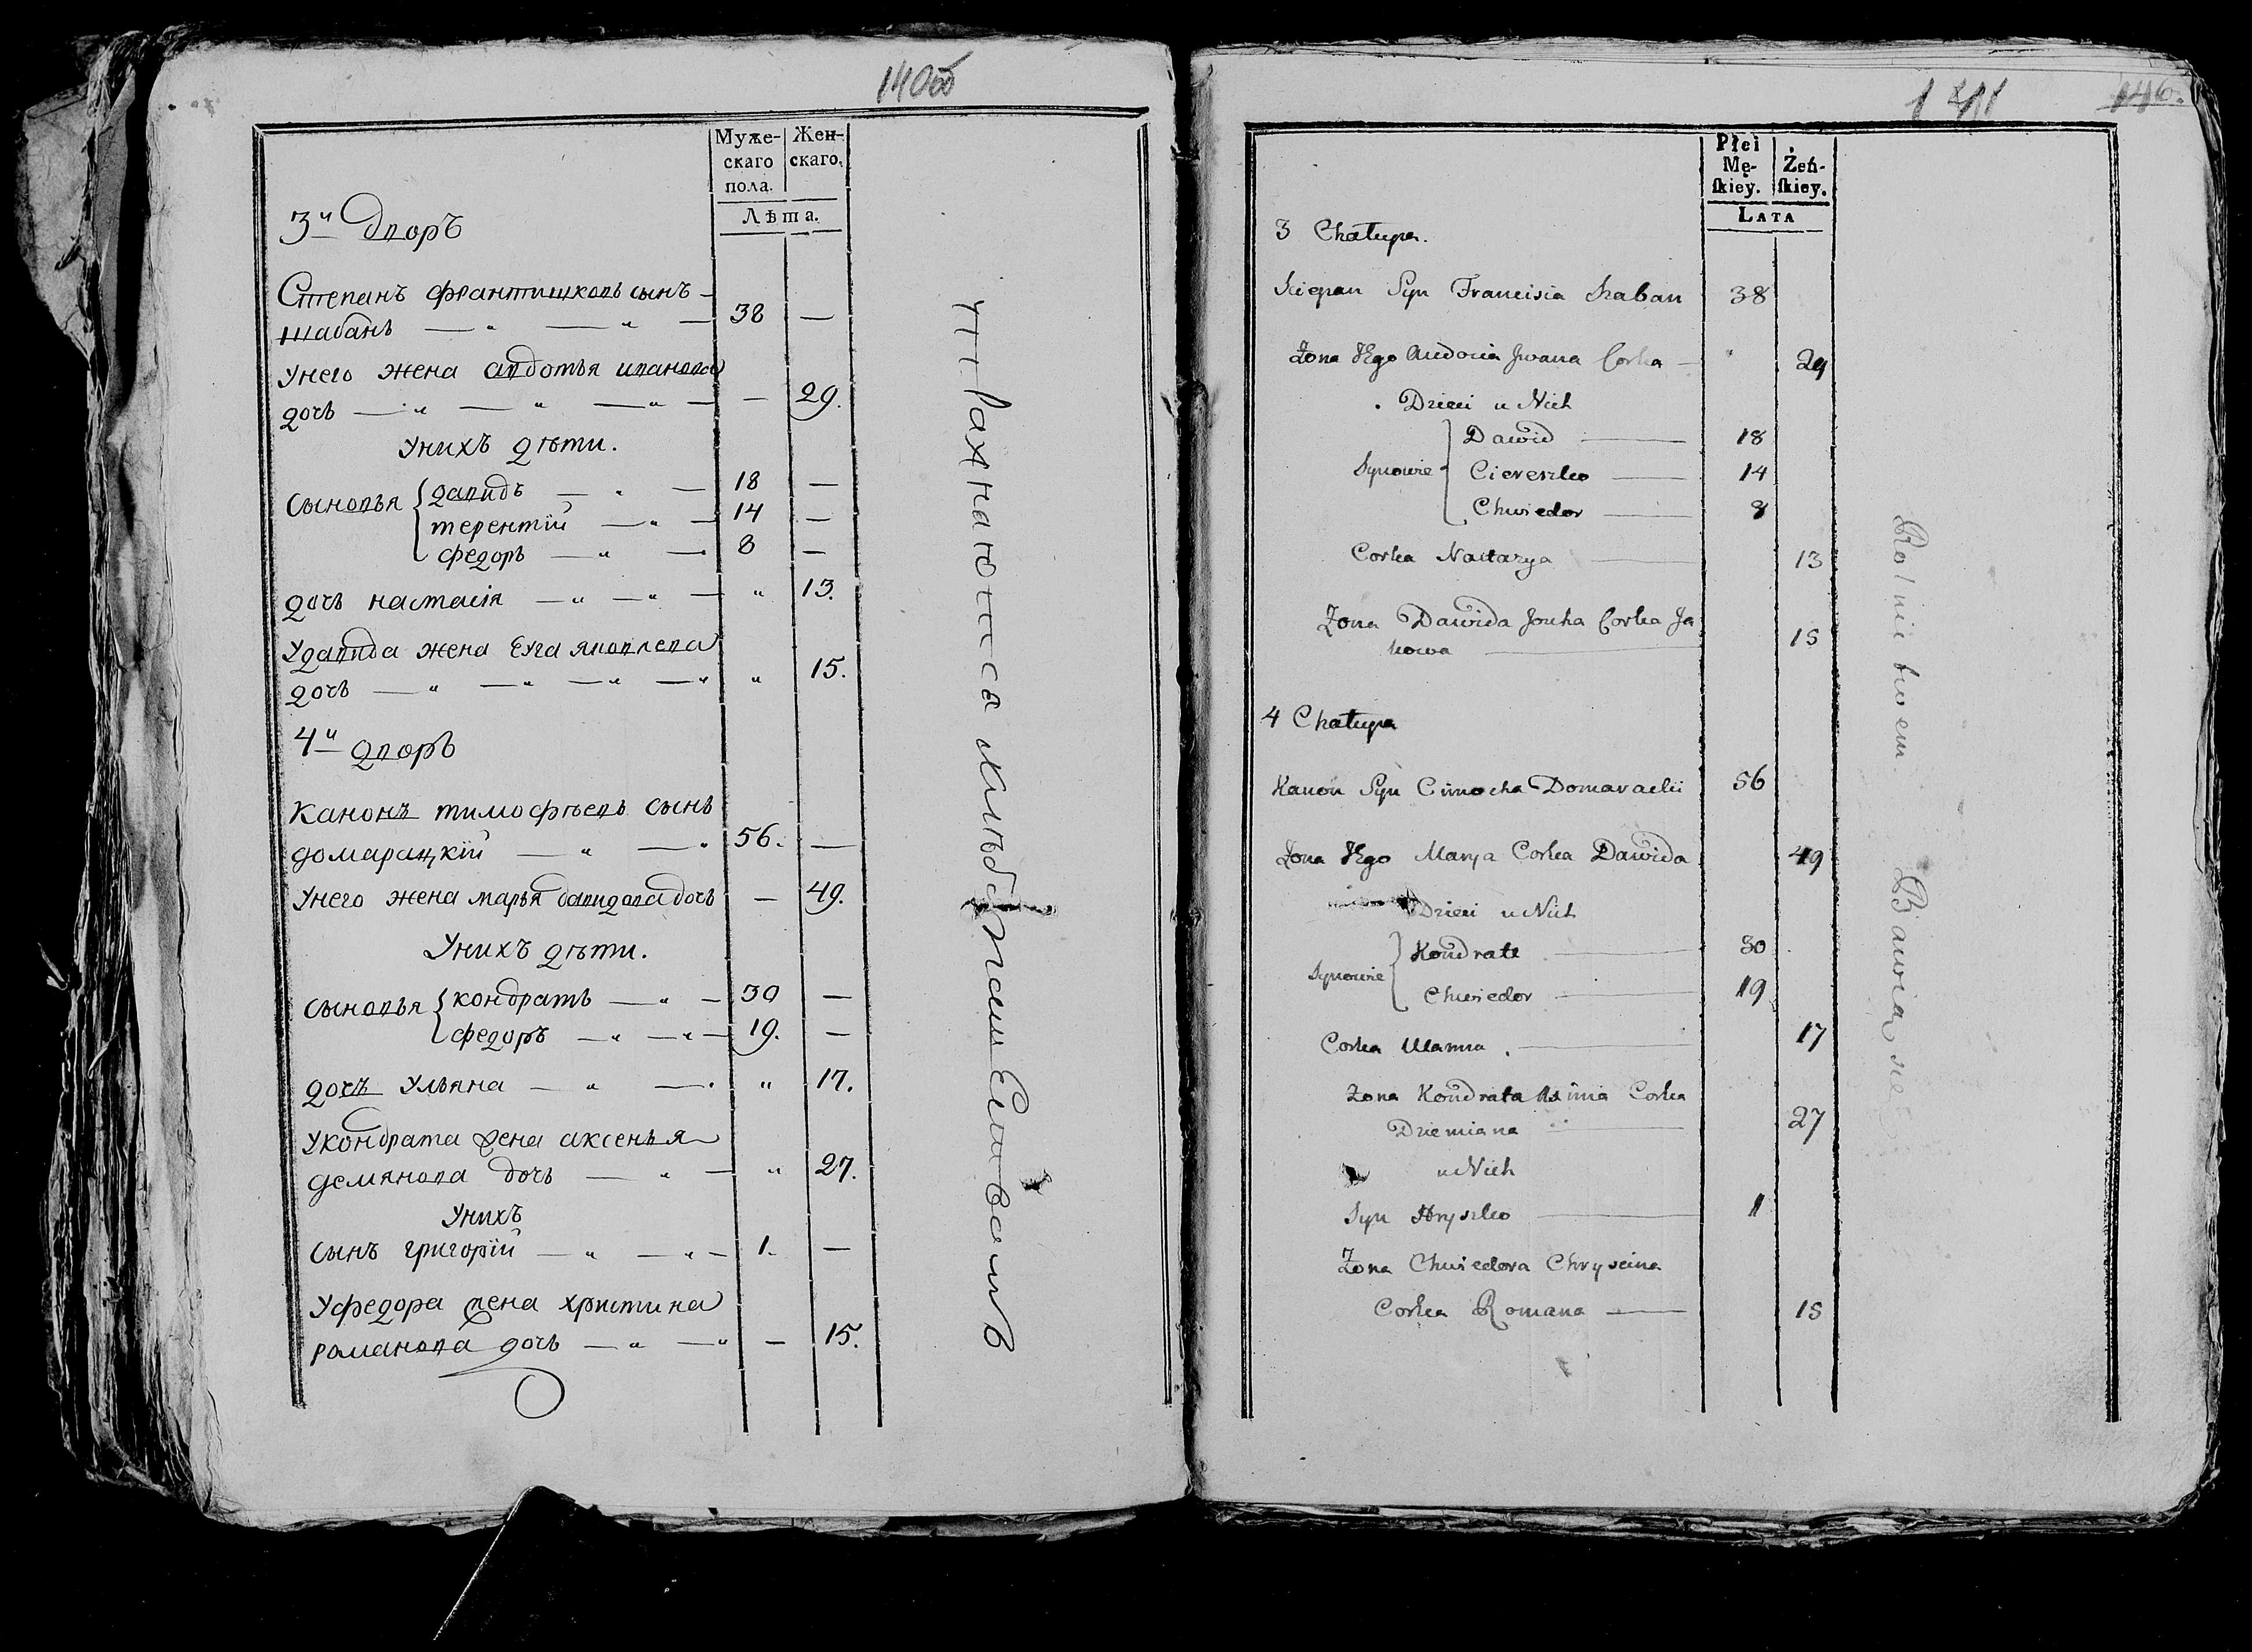 140об
Муже-
скаго
пола.
Жен-
скаго.
Лѣта.
3й дворъ
Степанъ франтишковъ сынъ
шабанъ — " — " — 38 —
Унего жена авдотья иванова
дочь — " — " — " — — 29.
Унихъ дѣти.
Сыновья { давидъ — " — 18 —
терентїй — " — 14 —
федоръ — " — 8 —
дочь настасія — " — " — " 13.
Удавида жена Евга яковлева
дочь — " — " — " — " " 15.
4й дворъ
Канонъ тимофѣевъ сынъ
домарацкїй — " — " 56. —
Унего жена марья давидова дочь — 49.
Унихъ дѣти.
сыновья { кондратъ — " — 30 —
федоръ — " — " — 19. —
дочь Ульяна — " — " " 17.
Укондрата жена аксенья
демянова дочь — " — " 27.
Унихъ
сынъ григорїй — " — " — 1. —
Уфедора жена христина
романова дочь — " — " — 15.
141
146.
Płci
Mę-
ſkiey.
Żeń-
ſkiey.
Lata
3 Chałupa.
Sciepan Syn Francisza Szaban 38
Żona Jego Audocia Jwana Corka — 29
Dzieci u Nich
Synowie { Dawid — 18
Cereszko — 14
Chwiedor — 8
Corka Nastazya — 13
Żona Dawida Jouha Corka Ja
kowa — 15
4 Chałupa
Kanon Syn Cimocha Domaracki 56
Żona Jego Marya Corka Dawida 49
Dzieci u Nich
Synowie { Kondrat — 30
Chwiedor — 19
Corka Ulanna — 17
Żona Kondrata Corka
Dziemiana — 27
u Nich
Syn Hryszko — 1
Żona Chwiedora Chryscina
Corka Romana — 15
Rolnictwem Bawią się